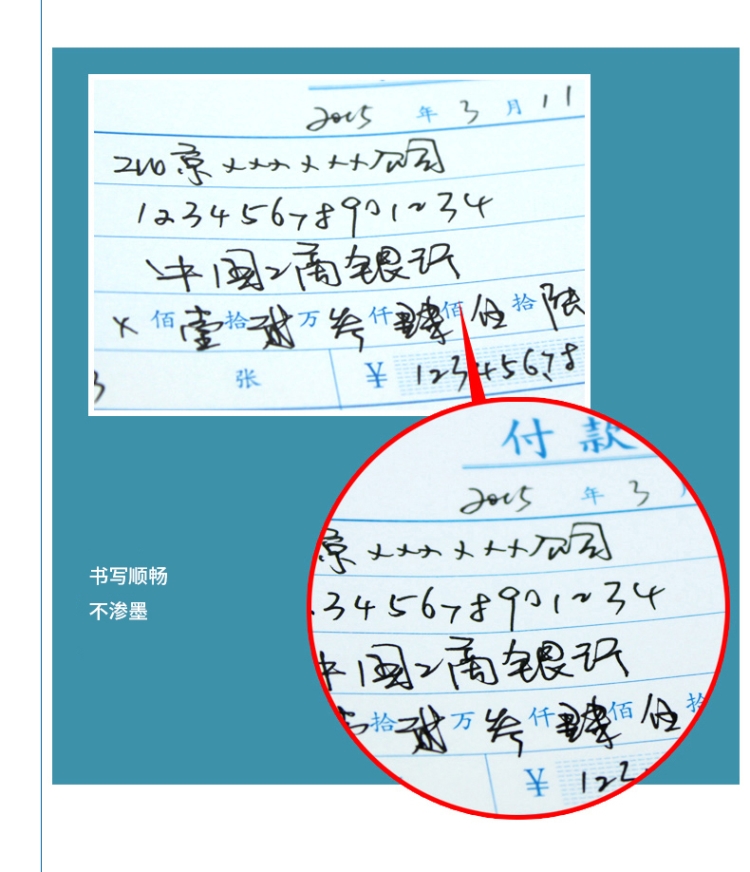 2015 年 3 月 11
京××××××公司
12345678901234
中国工商银行
× 佰 壹 拾 贰 万 叁 仟 肆 佰 伍 拾 陆
张 ¥ 12345678
付 款
2015 年 3 月
京××××××公司
345678901234
中国工商银行
拾 贰 万 叁 仟 肆 佰 伍 拾
¥ 12
书写顺畅
不渗墨